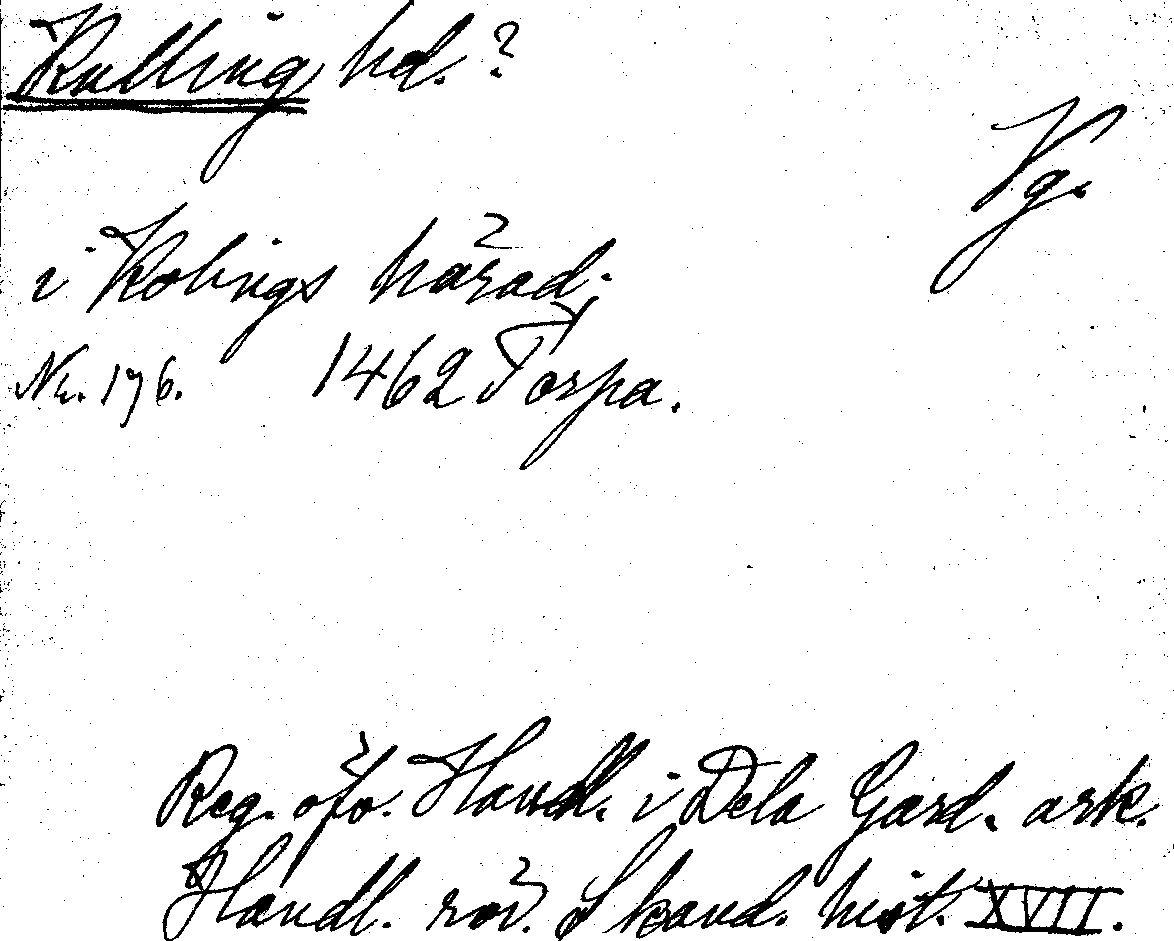 Kulling hd. ?
Vg.
i Kolings härad;
Nr. 176. 1462 Torpa.
Reg. öfv. Handl. i Dela Gard. ark.
Handl. rör. Skand. hist. XVII.